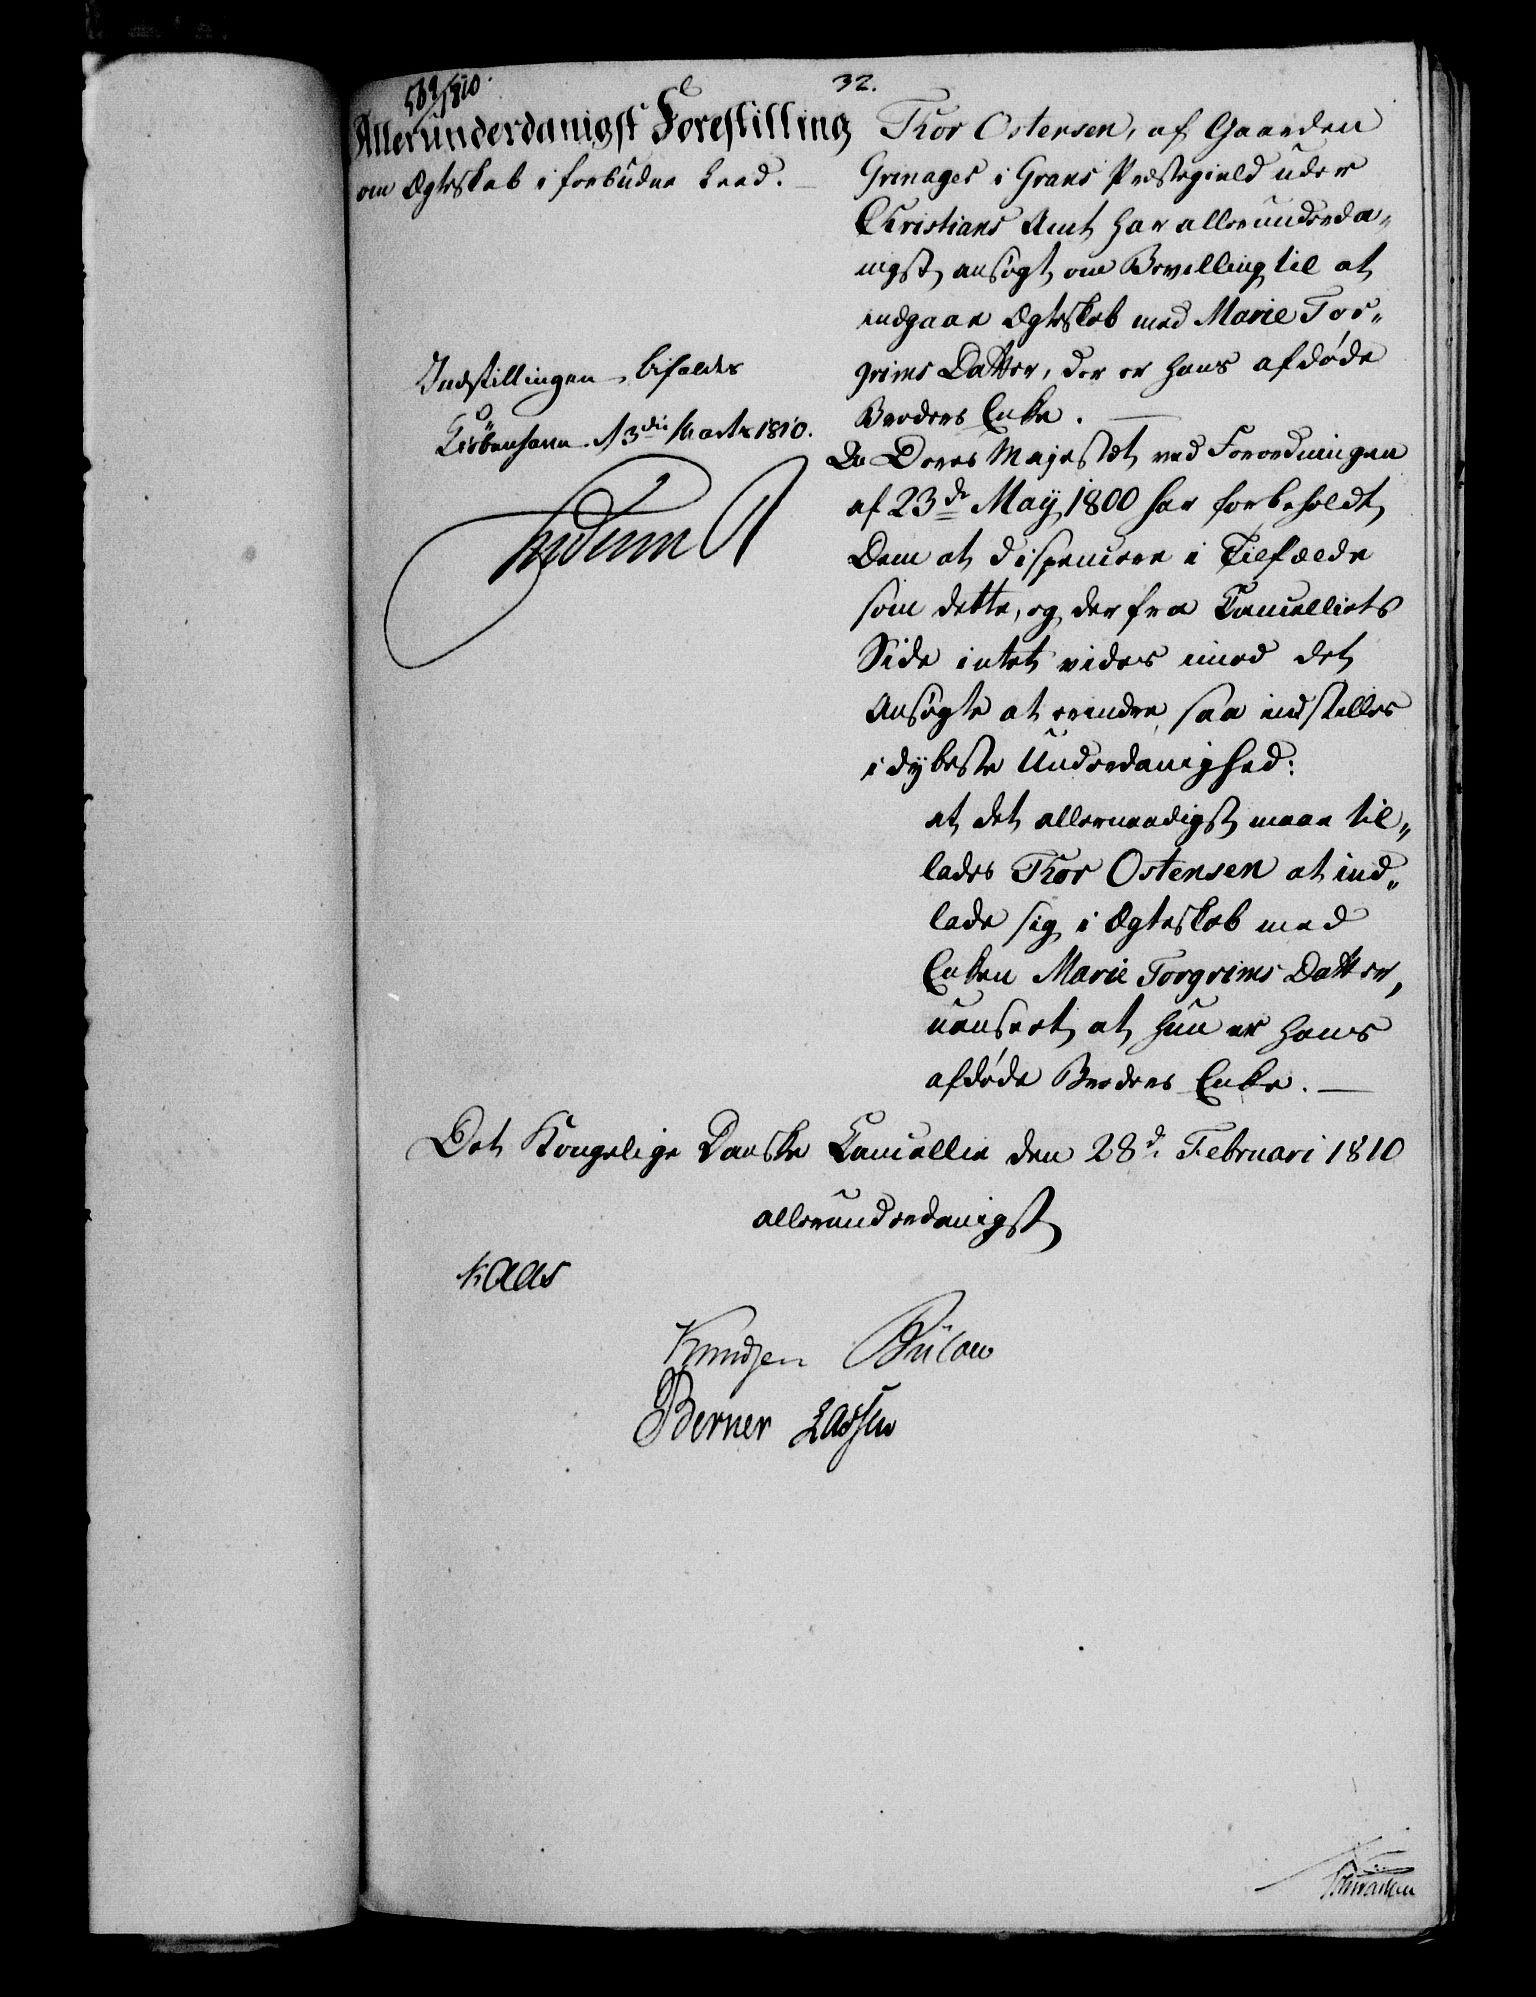 32.
569/1810.
Allerunderdanigst Forestilling
om Ægteskab i forbudne Leed.
Indstillingen bifaldes
Kiöbenhavn d 3die Martz 1810.
Thor Ostensen, af Gaarden
Grinager i Grans Præstegield under
Christians Amt har allerunderda„
nigst ansøgt om Bevilling til at
indgaae Ægteskab med Marie Tor„
grims Datter, der er hans afdøde
Broders Enke.
Da Deres Majestæt ved Forordningen
af 23de May 1800 har forbeholdt
Dem at dispensere i Tilfælde
som dette, og der fra Cancelliets
Side intet vides imod det
Ansøgte at erindre, saa indstilles
i dybeste Underdanighed:
at det allernaadigst maae til„
lades Thor Ostensen at ind„
lade sig i Ægteskab med
Enken Marie Torgrims Datter,
uanseet at hun er hans
afdøde Broders Enke.
Det Kongelige Danske Cancellie den 28d. Februari 1810
allerunderdanigst
Kaas
Knudsen Bülow
Berner Lassen